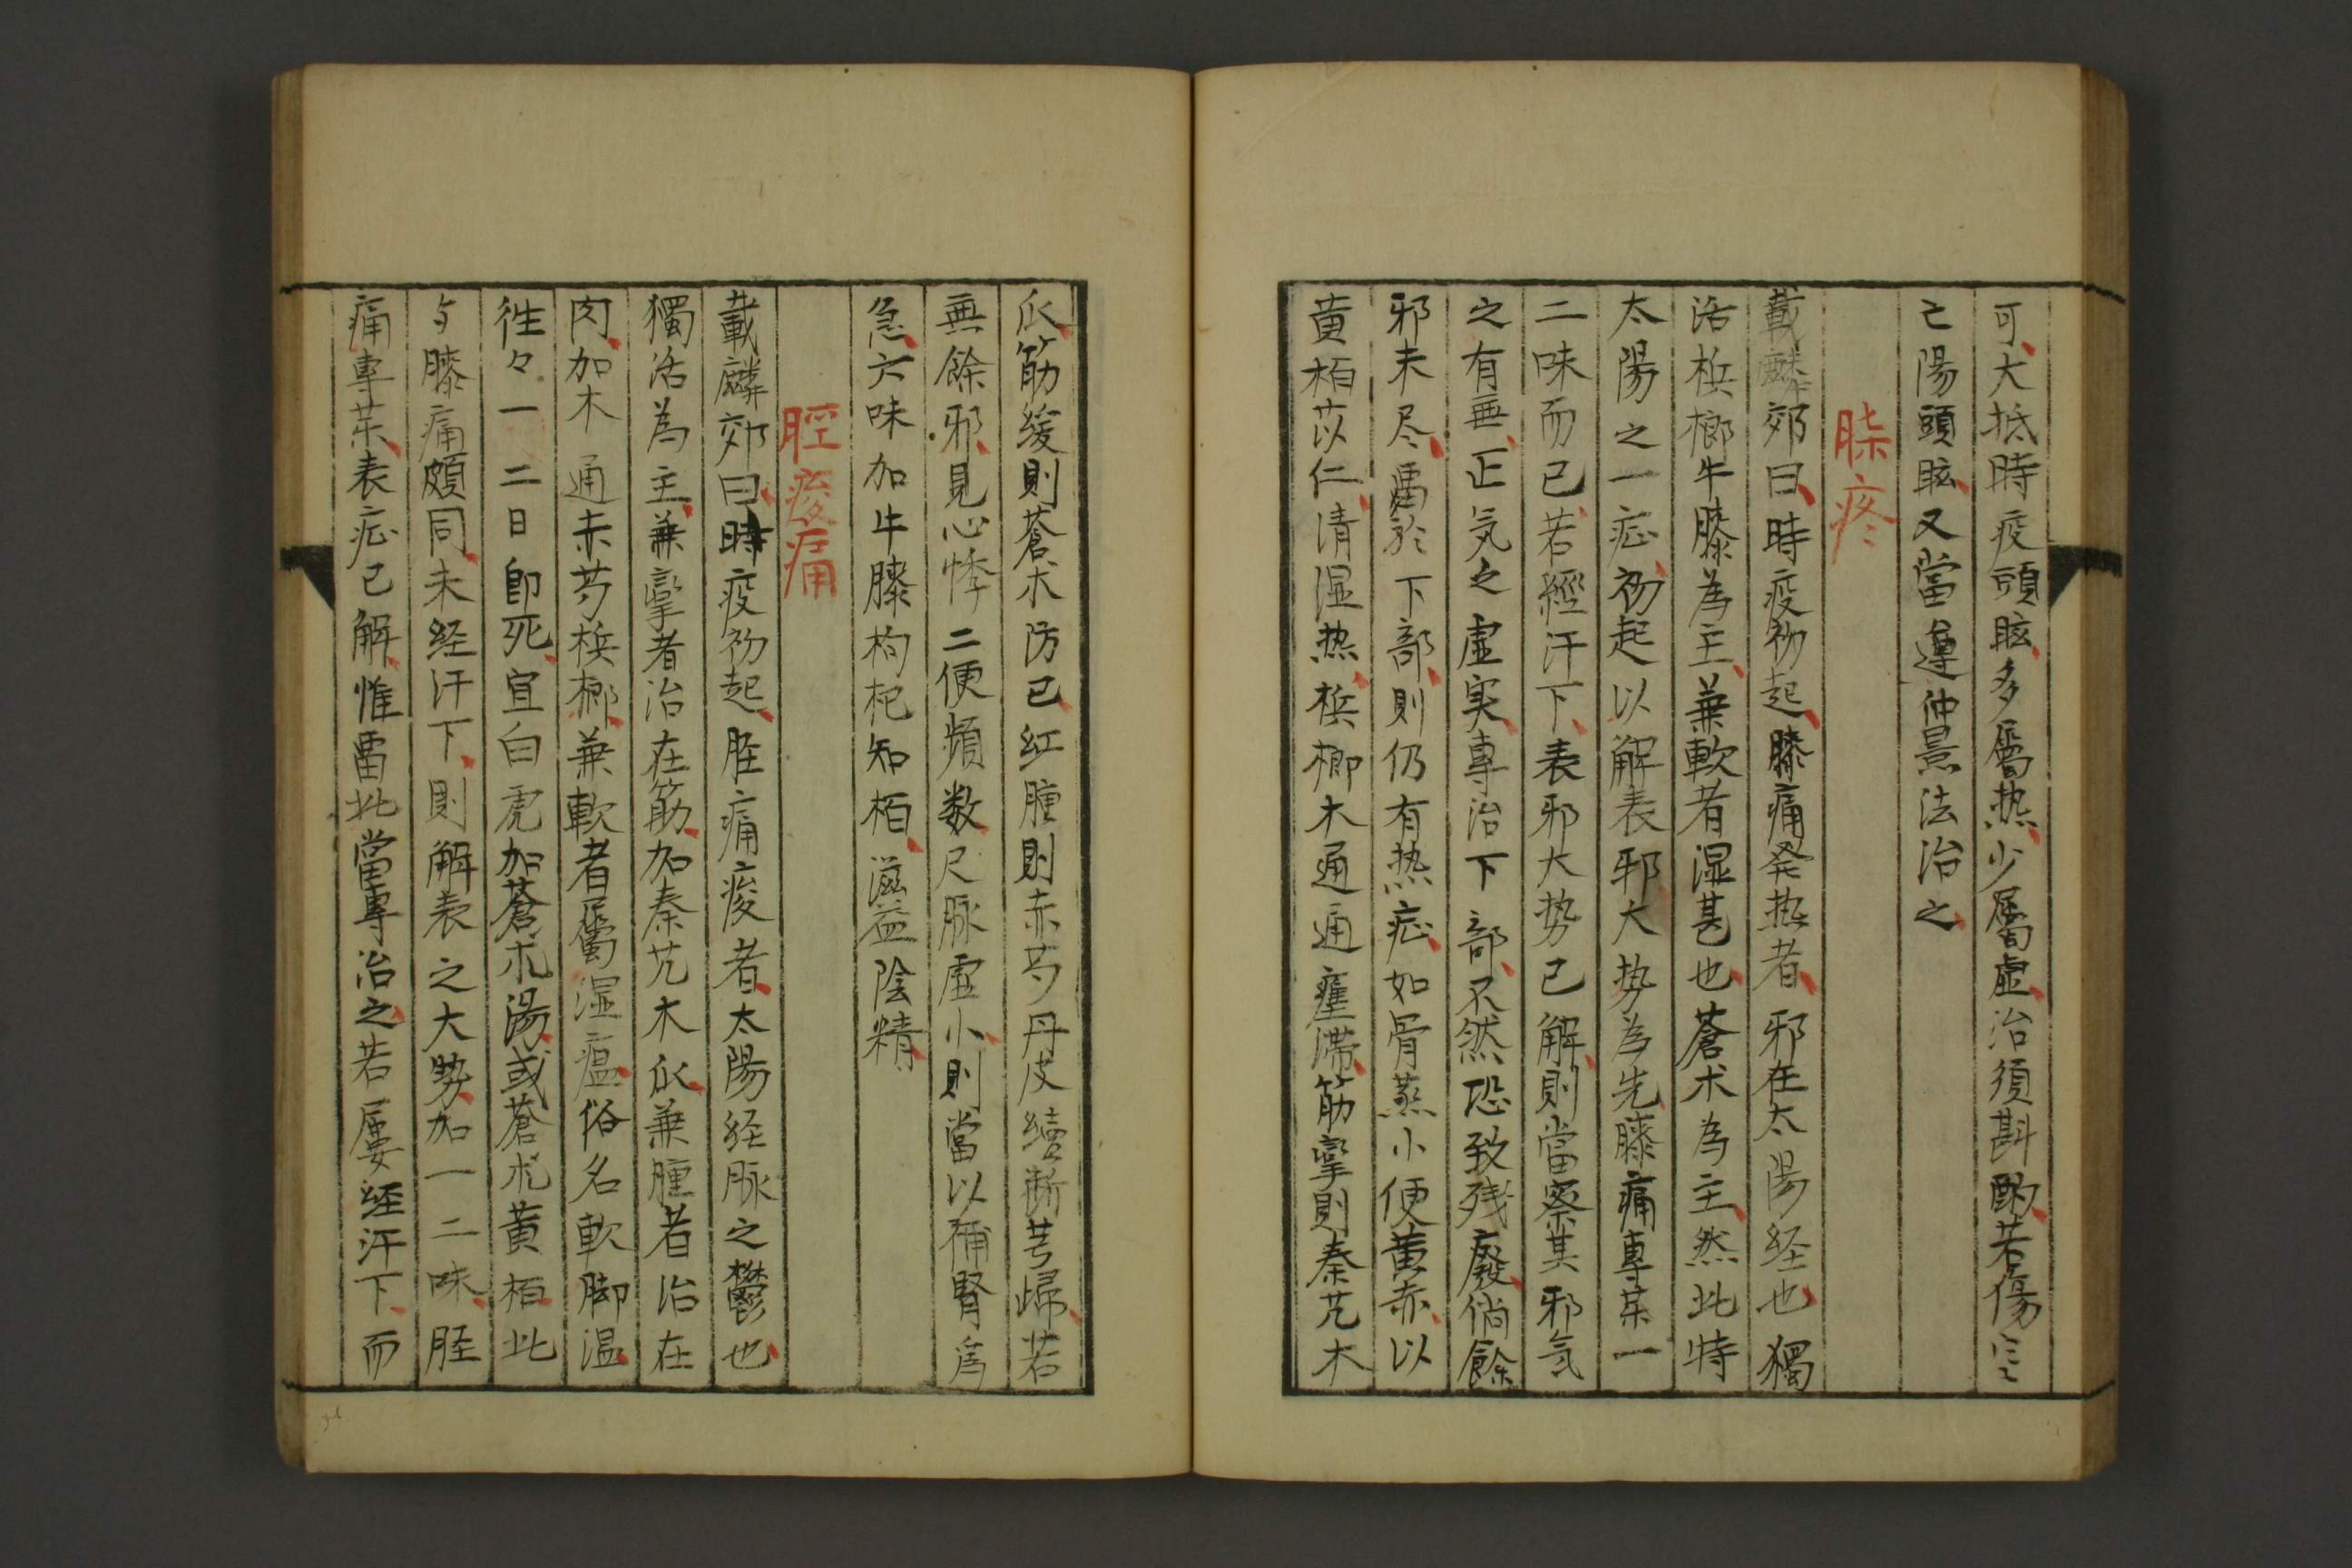 可大抵時疫頭眩多属热少屬虛治須斟酌若傷寒
亡陽頭眩又當遵仲景法治之
膝疼
戴麟郊曰時疫初起膝痛発热者邪在太陽经也獨
活梹榔牛膝為主兼軟者湿甚也蒼术為主然此特
太陽之一症初起以解表邪大势為先膝痛專菜一
二味而已若經汗下表邪大势已解則當察其邪気
之有無正気之虛実專治下部不然恐致残廢倘餘
邪未尽畱於下部則仍有热症如骨蒸小便黄赤以
黄栢苡仁清湿热梹榔木通通壅滞筋攣則秦艽木
瓜筋缓則蒼术防已红腫則赤芍丹皮續断芎歸若
無餘邪見心悸二便頻数尺脉虛小則當以補腎為
急六味加牛膝枸杞知栢滋益陰精
脛痠痛
戴麟郊曰時疫初起胫痛痠者太陽经脉之鬱也
獨活為主兼攣者治在筋加秦艽木瓜兼腫者治在
肉加木通赤芍梹榔兼軟者屬湿瘟俗名軟脚温
徃々一二日即死宜白虎加蒼术湯或蒼术黄栢此
与膝痛頗同未经汗下則解表之大势加一二味胫
痛專菜表症已解惟畱此當專治之若屢经汗下而